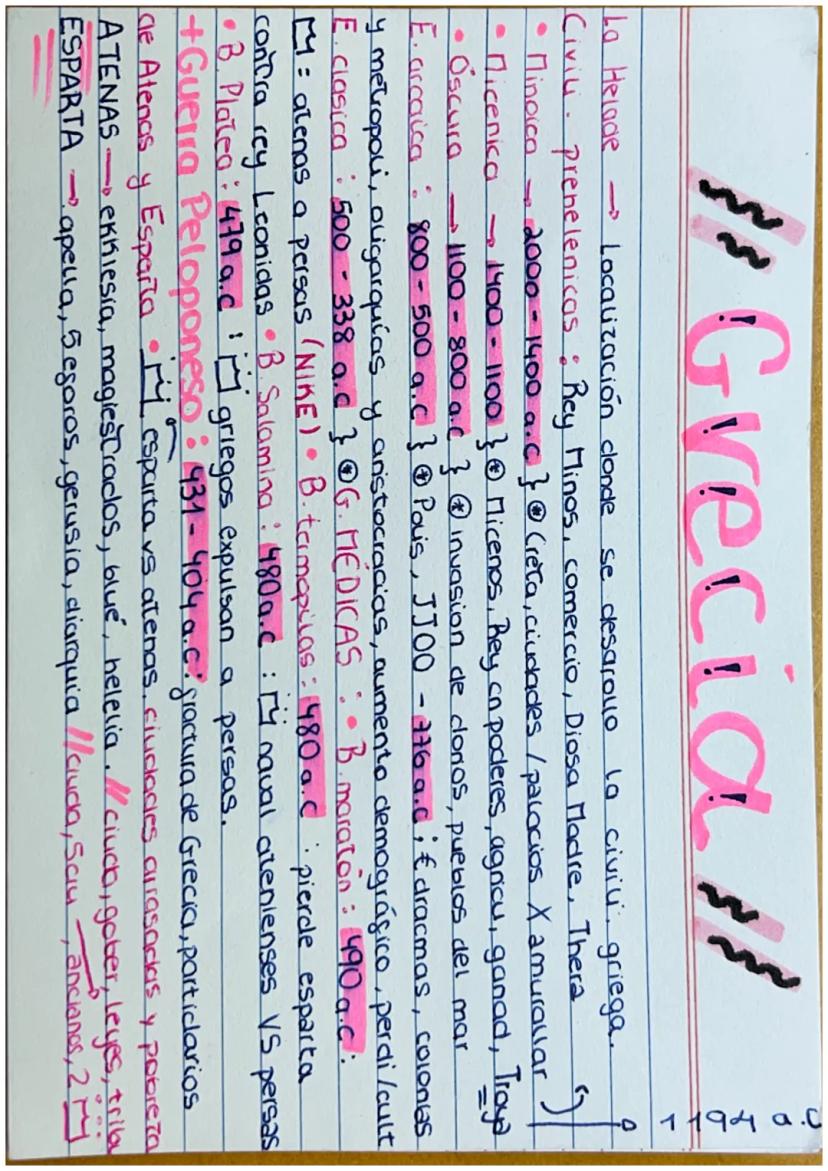 Grecia
1194 a.C
La Helade → Localización donde se desarollo la civili. griega.
Civili. prehelenicas: Rey Minos, comercio, Diosa Madre, Thera
• Minoica → 2000 - 1400 a.C } * Creta, ciudades / palacios X amurallar
• Micenica → 1400 - 1100 } * Micenas, Rey cn poderes, agricu, ganad, Troya
• Óscura → 1100 - 800 a.C } * invasion de dorios, pueblos del mar
E. arcaica: 800 - 500 a.C } * Polis, JJOO - 776 a.C; € dracmas, colonias
y metropoli, oligarquías y aristocracias, aumento demográfico, perdi/cult
E. clasica: 500 - 338 a.C } * G. MÉDICAS: • B. maratón: 490 a.C:
: atenas a persas (NIKE) • B. termopilas: 480 a.C: pierde esparta
contra rey Leonidas • B. Salamina: 480 a.C: naval atenienses VS persas
• B. Platea: 479 a.C: griegos expulsan a persas.
+Guerra Peloponeso: 431 - 404 a.C: fractura de Grecia, particlarios
de Atenas y Esparta • esparta vs atenas, ciudades arrasadas y pobreza
ATENAS → ekklesia, magiestrados, blué, helelia. // ciuda, gober, leyes, tribu
ESPARTA → apella, 5 eforos, gerusia, diarquia // ciuda, 5 ciu, ancianos, 2